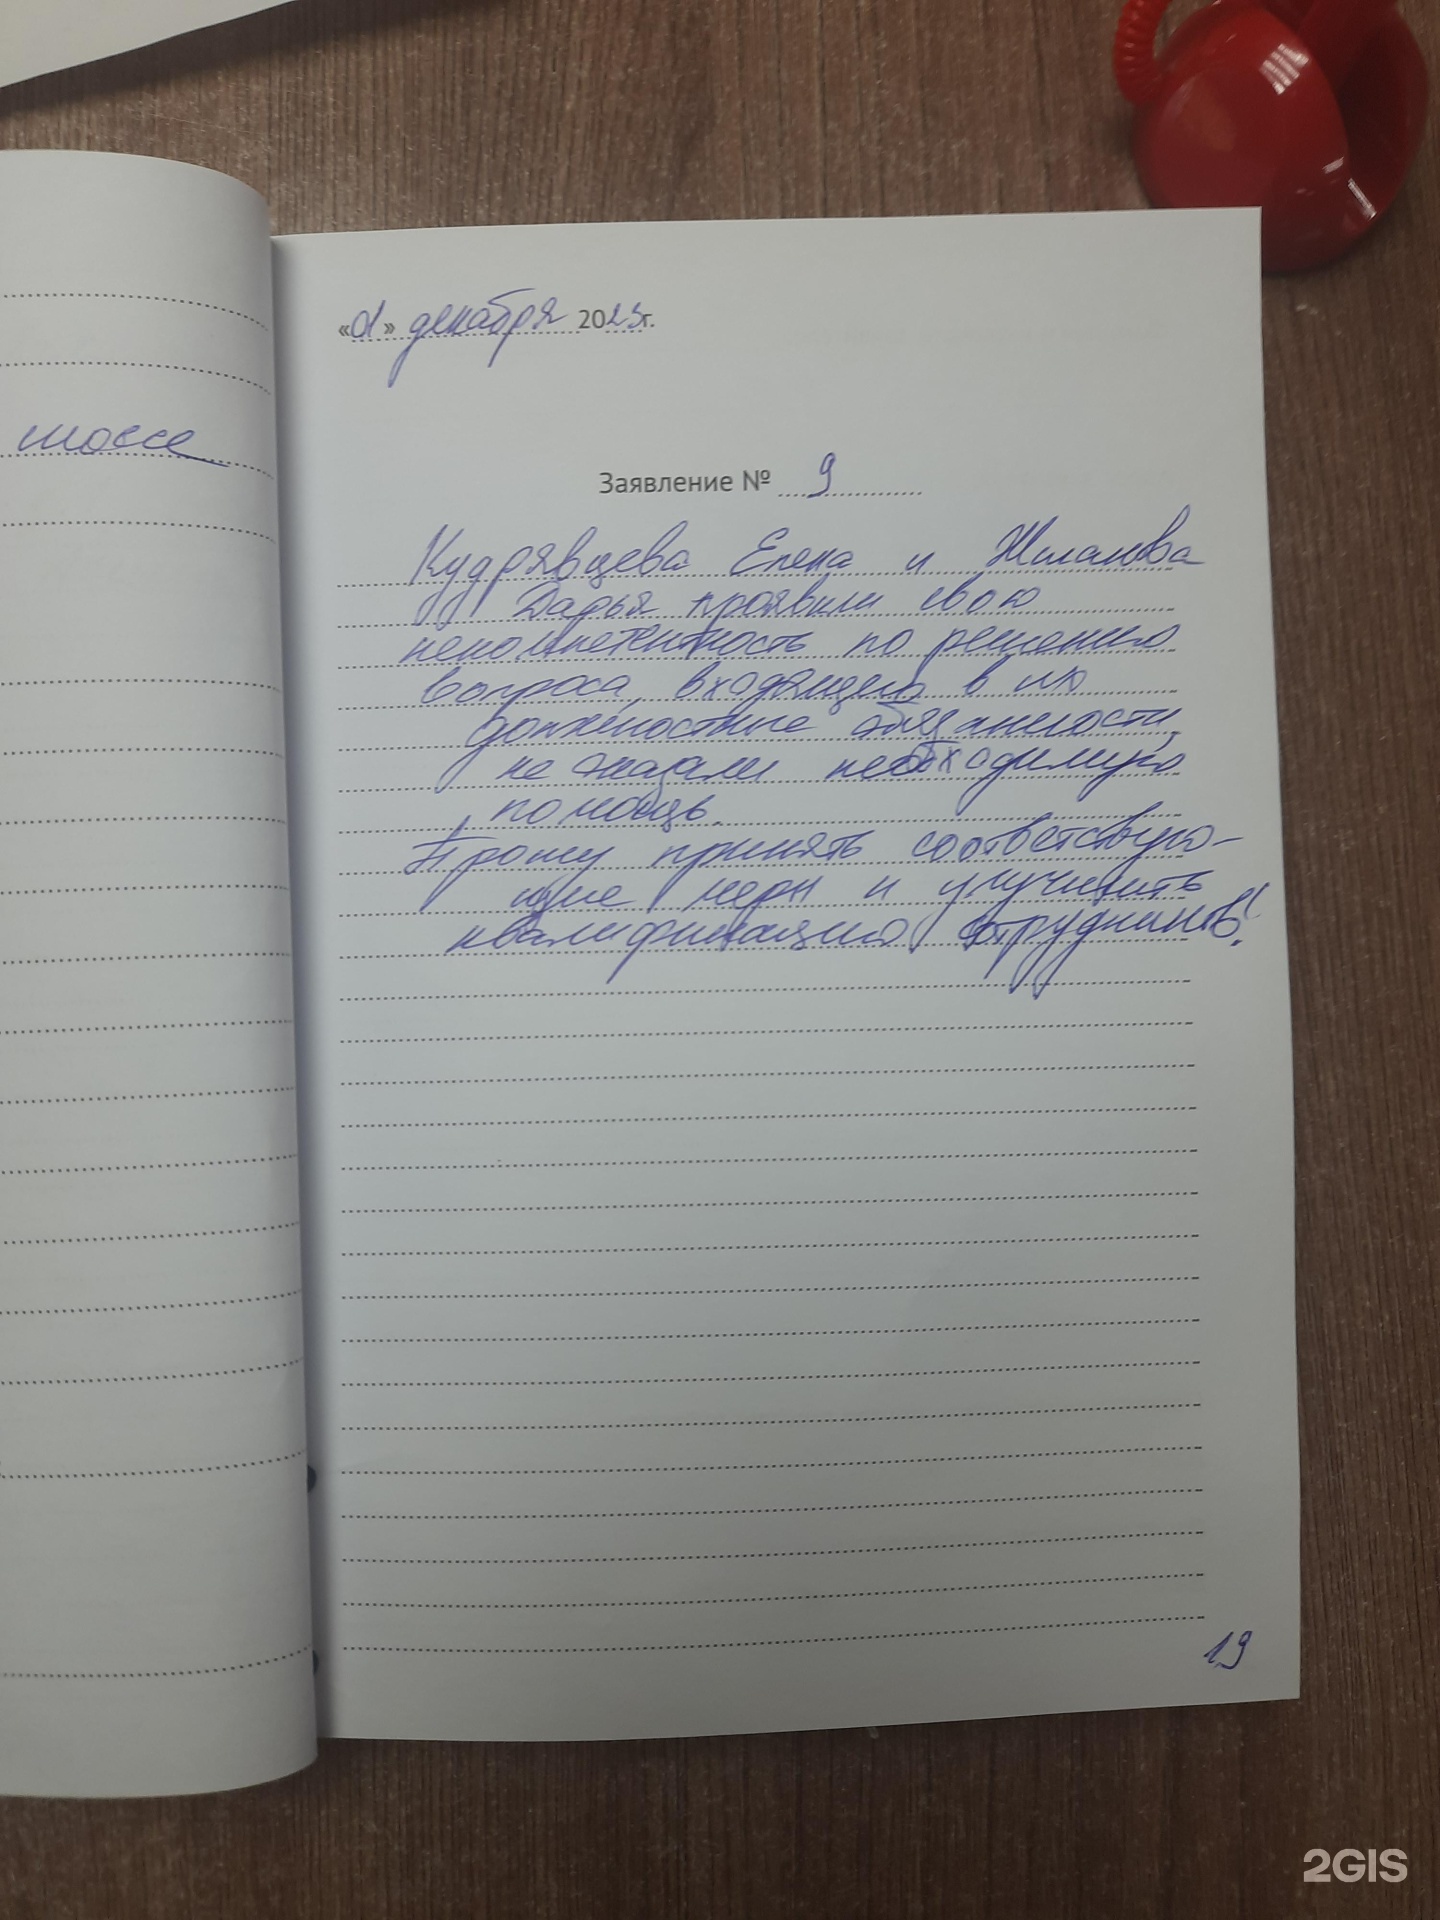 шоссе
«01» декабря 2023г.
Заявление № 9
Кудрявцева Елена и
Дарья проявили свою
некомпетентность по решению
вопроса, входящего в их
должностные обязанности,
не оказали необходимую
помощь.
Прошу принять соответствую-
щие меры и улучшить
квалификацию сотрудников!
19
2GIS